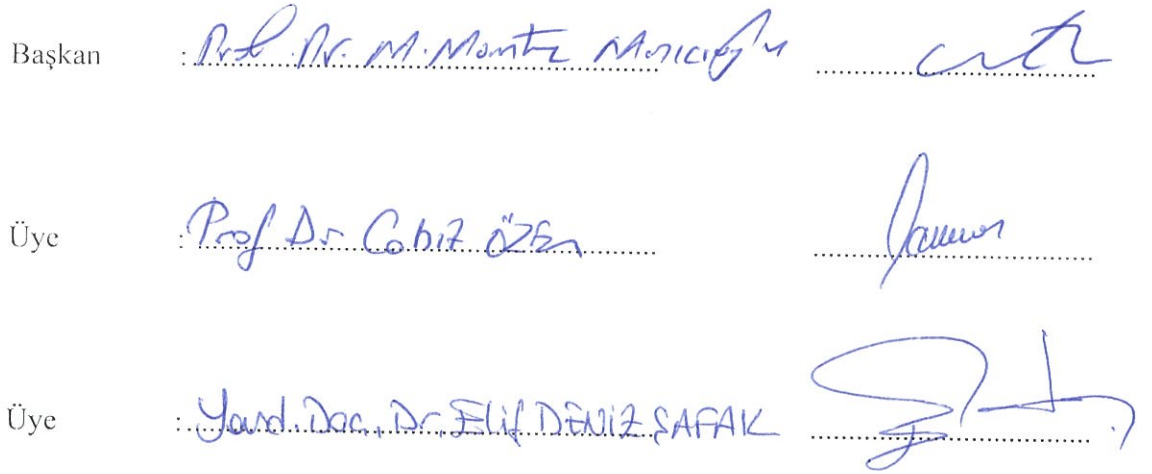 Başkan : Prof. Dr. M. Mümtaz Mazıcıoğlu
Üye : Prof Dr Cabiz ÖZEn
Üye : Yard. Doc. Dr. Elif DENİZ ŞAFAK